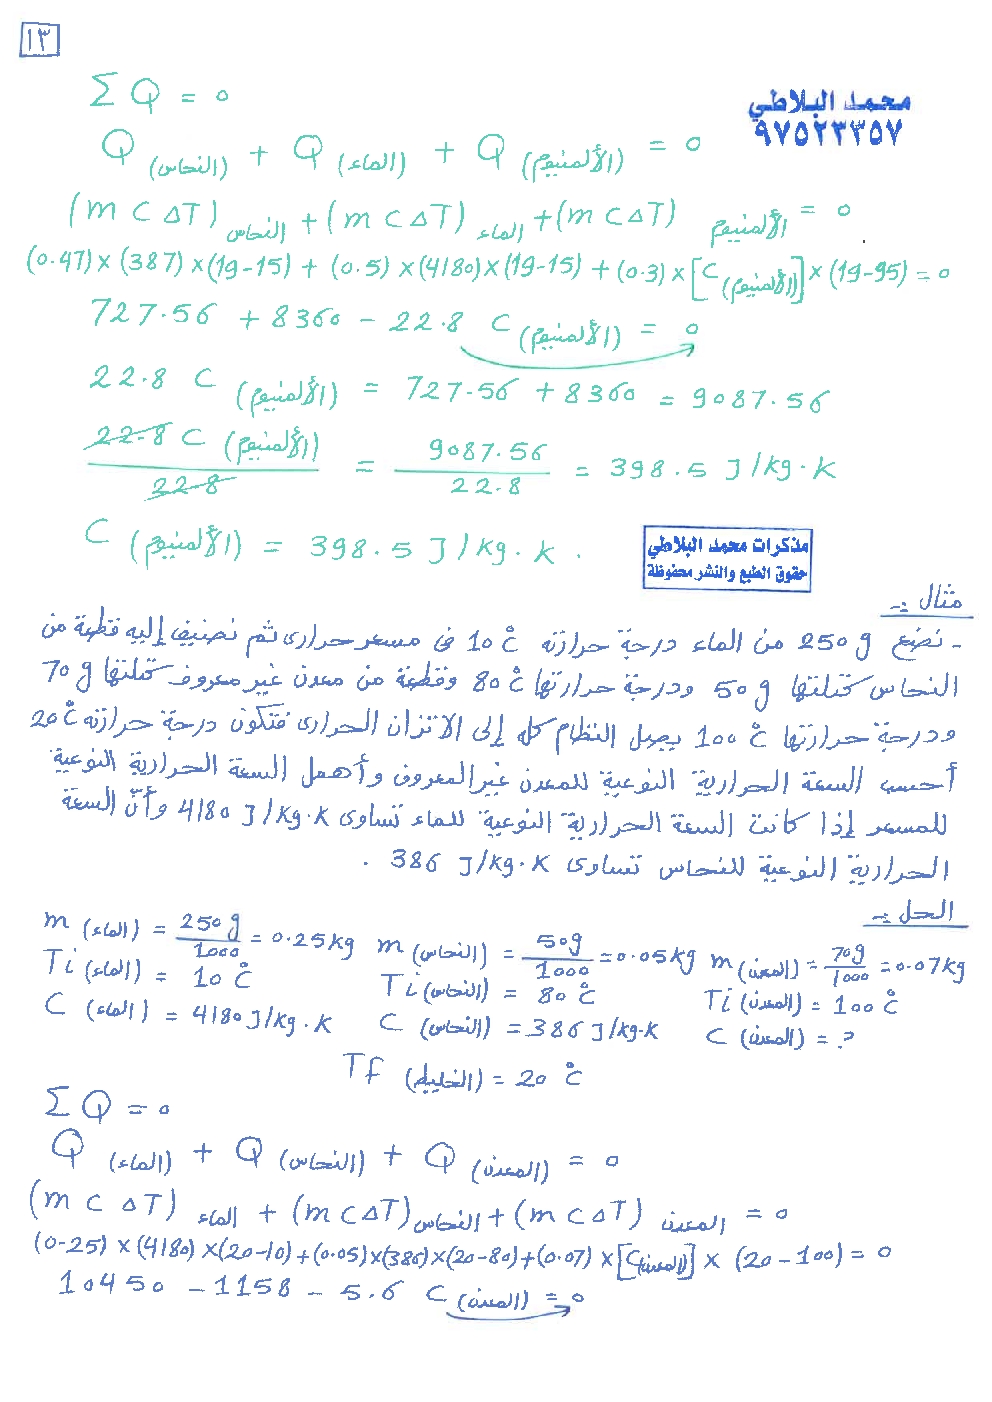 ١٣
محمد البلاطي
٩٧٥٢٣٣٥٧
Σ Q = 0
Q (النحاس) + Q (الماء) + Q (الألمنيوم) = 0
(m C ΔT) النحاس + (m C ΔT) الماء + (m C ΔT) الألمنيوم = 0
(0.47) × (387) × (19-15) + (0.5) × (4180) × (19-15) + (0.3) × [C (الألمنيوم)] × (19-95) = 0
727.56 + 8360 - 22.8 C (الألمنيوم) = 0
22.8 C (الألمنيوم) = 727.56 + 8360 = 9087.56
22.8 C (الألمنيوم) / 22.8 = 9087.56 / 22.8 = 398.5 J/kg.K
C (الألمنيوم) = 398.5 J/kg.K .
مذكرات محمد البلاطي
حقوق الطبع والنشر محفوظة
مثال :-
- نضع 250 g من الماء درجة حرارته 10 °C فى مسعر حرارى ثم نضيف إليه قطعة من
النحاس كتلتها 50 g ودرجة حرارتها 80 °C وقطعة من معدن غير معروف كتلتها 70 g
ودرجة حرارتها 100 °C يصل النظام كله إلى الاتزان الحرارى فتكون درجة حرارته 20 °C
أحسب السعة الحرارية النوعية للمعدن غير المعروف وأهمل السعة الحرارية النوعية
للمسعر إذا كانت السعة الحرارية النوعية للماء تساوى 4180 J/kg.K وأنّ السعة
الحرارية النوعية للنحاس تساوى 386 J/kg.K .
الحل :-
m (الماء) = 250 g / 1000 = 0.25 kg m (النحاس) = 50g / 1000 = 0.05 kg m (المعدن) = 70g / 1000 = 0.07 kg
Ti (الماء) = 10 °C Ti (النحاس) = 80 °C Ti (المعدن) = 100 °C
C (الماء) = 4180 J/kg.K C (النحاس) = 386 J/kg.K C (المعدن) = ?
Tf (الخليط) = 20 °C
Σ Q = 0
Q (الماء) + Q (النحاس) + Q (المعدن) = 0
(m C ΔT) الماء + (m C ΔT) النحاس + (m C ΔT) المعدن = 0
(0.25) × (4180) × (20-10) + (0.05) × (386) × (20-80) + (0.07) × [C(المعدن)] × (20-100) = 0
10450 - 1158 - 5.6 C (المعدن) = 0